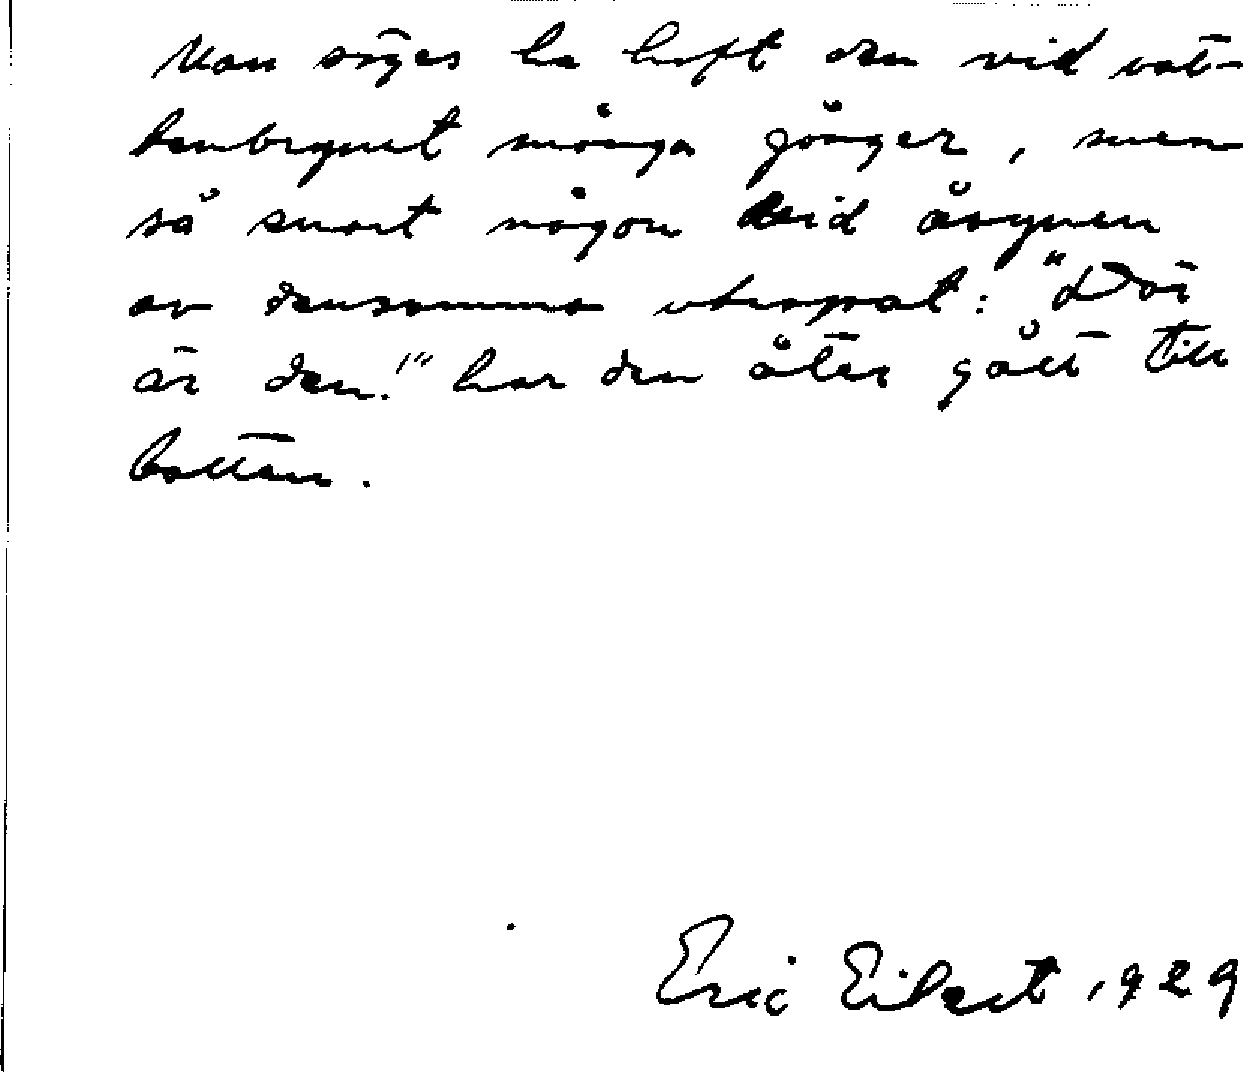 Man säges ha haft den vid vat-
tenbrynet många gånger, men
så snart någon vid åsynen
av densamma utropat: "Där
är den!" har den åter gått till
botten.
Eric Eilert 1929